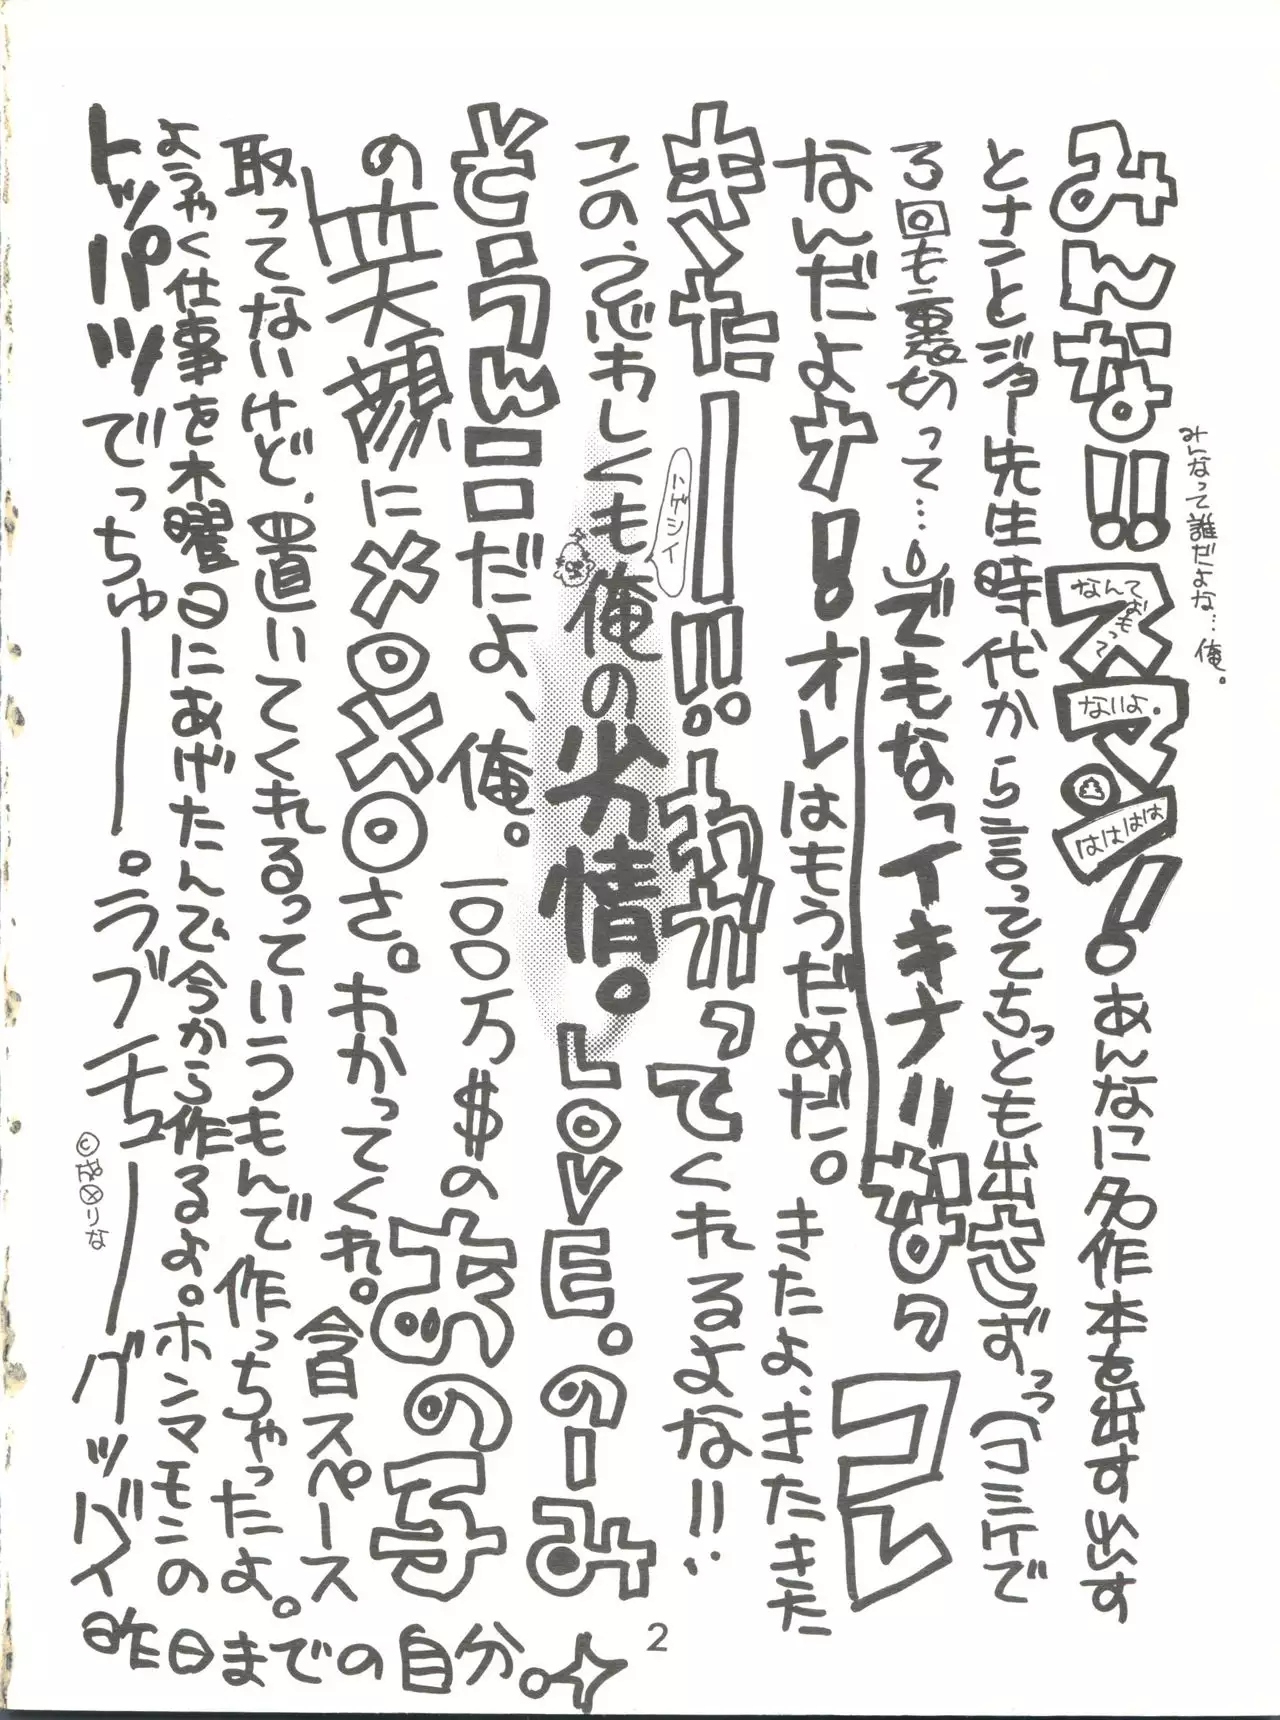 みんなって誰だよな…俺。
みんな!!スマン!あんなに名作本を出す出す
なんておもってないよ。
はははは
とナニとジョー先生時代から言っててちっとも出さずっっ(コミケで
3回も裏切って…。)でもなっイキナリなっコレ
なんだよナ!オレはもうだめだ。きたよ、きたきた
きたーー!!わかってくれるよな!!
ハゲシイ
この、うぶわしくも俺の劣情。LOVE.のーみ
そっうんーロだよ、俺。100万$のあの子
の笑顔に××○×○さ。わかってくれ。今日スペース
取ってないけど、置いてくれるっていうもんで作っちゃったよ。
ようやく仕事を木曜日にあげたんで今から作るよ。ホンマモンの
トッパツでっちゅーー。ラブチューーグッバイ
昨日までの自分。
りな
2